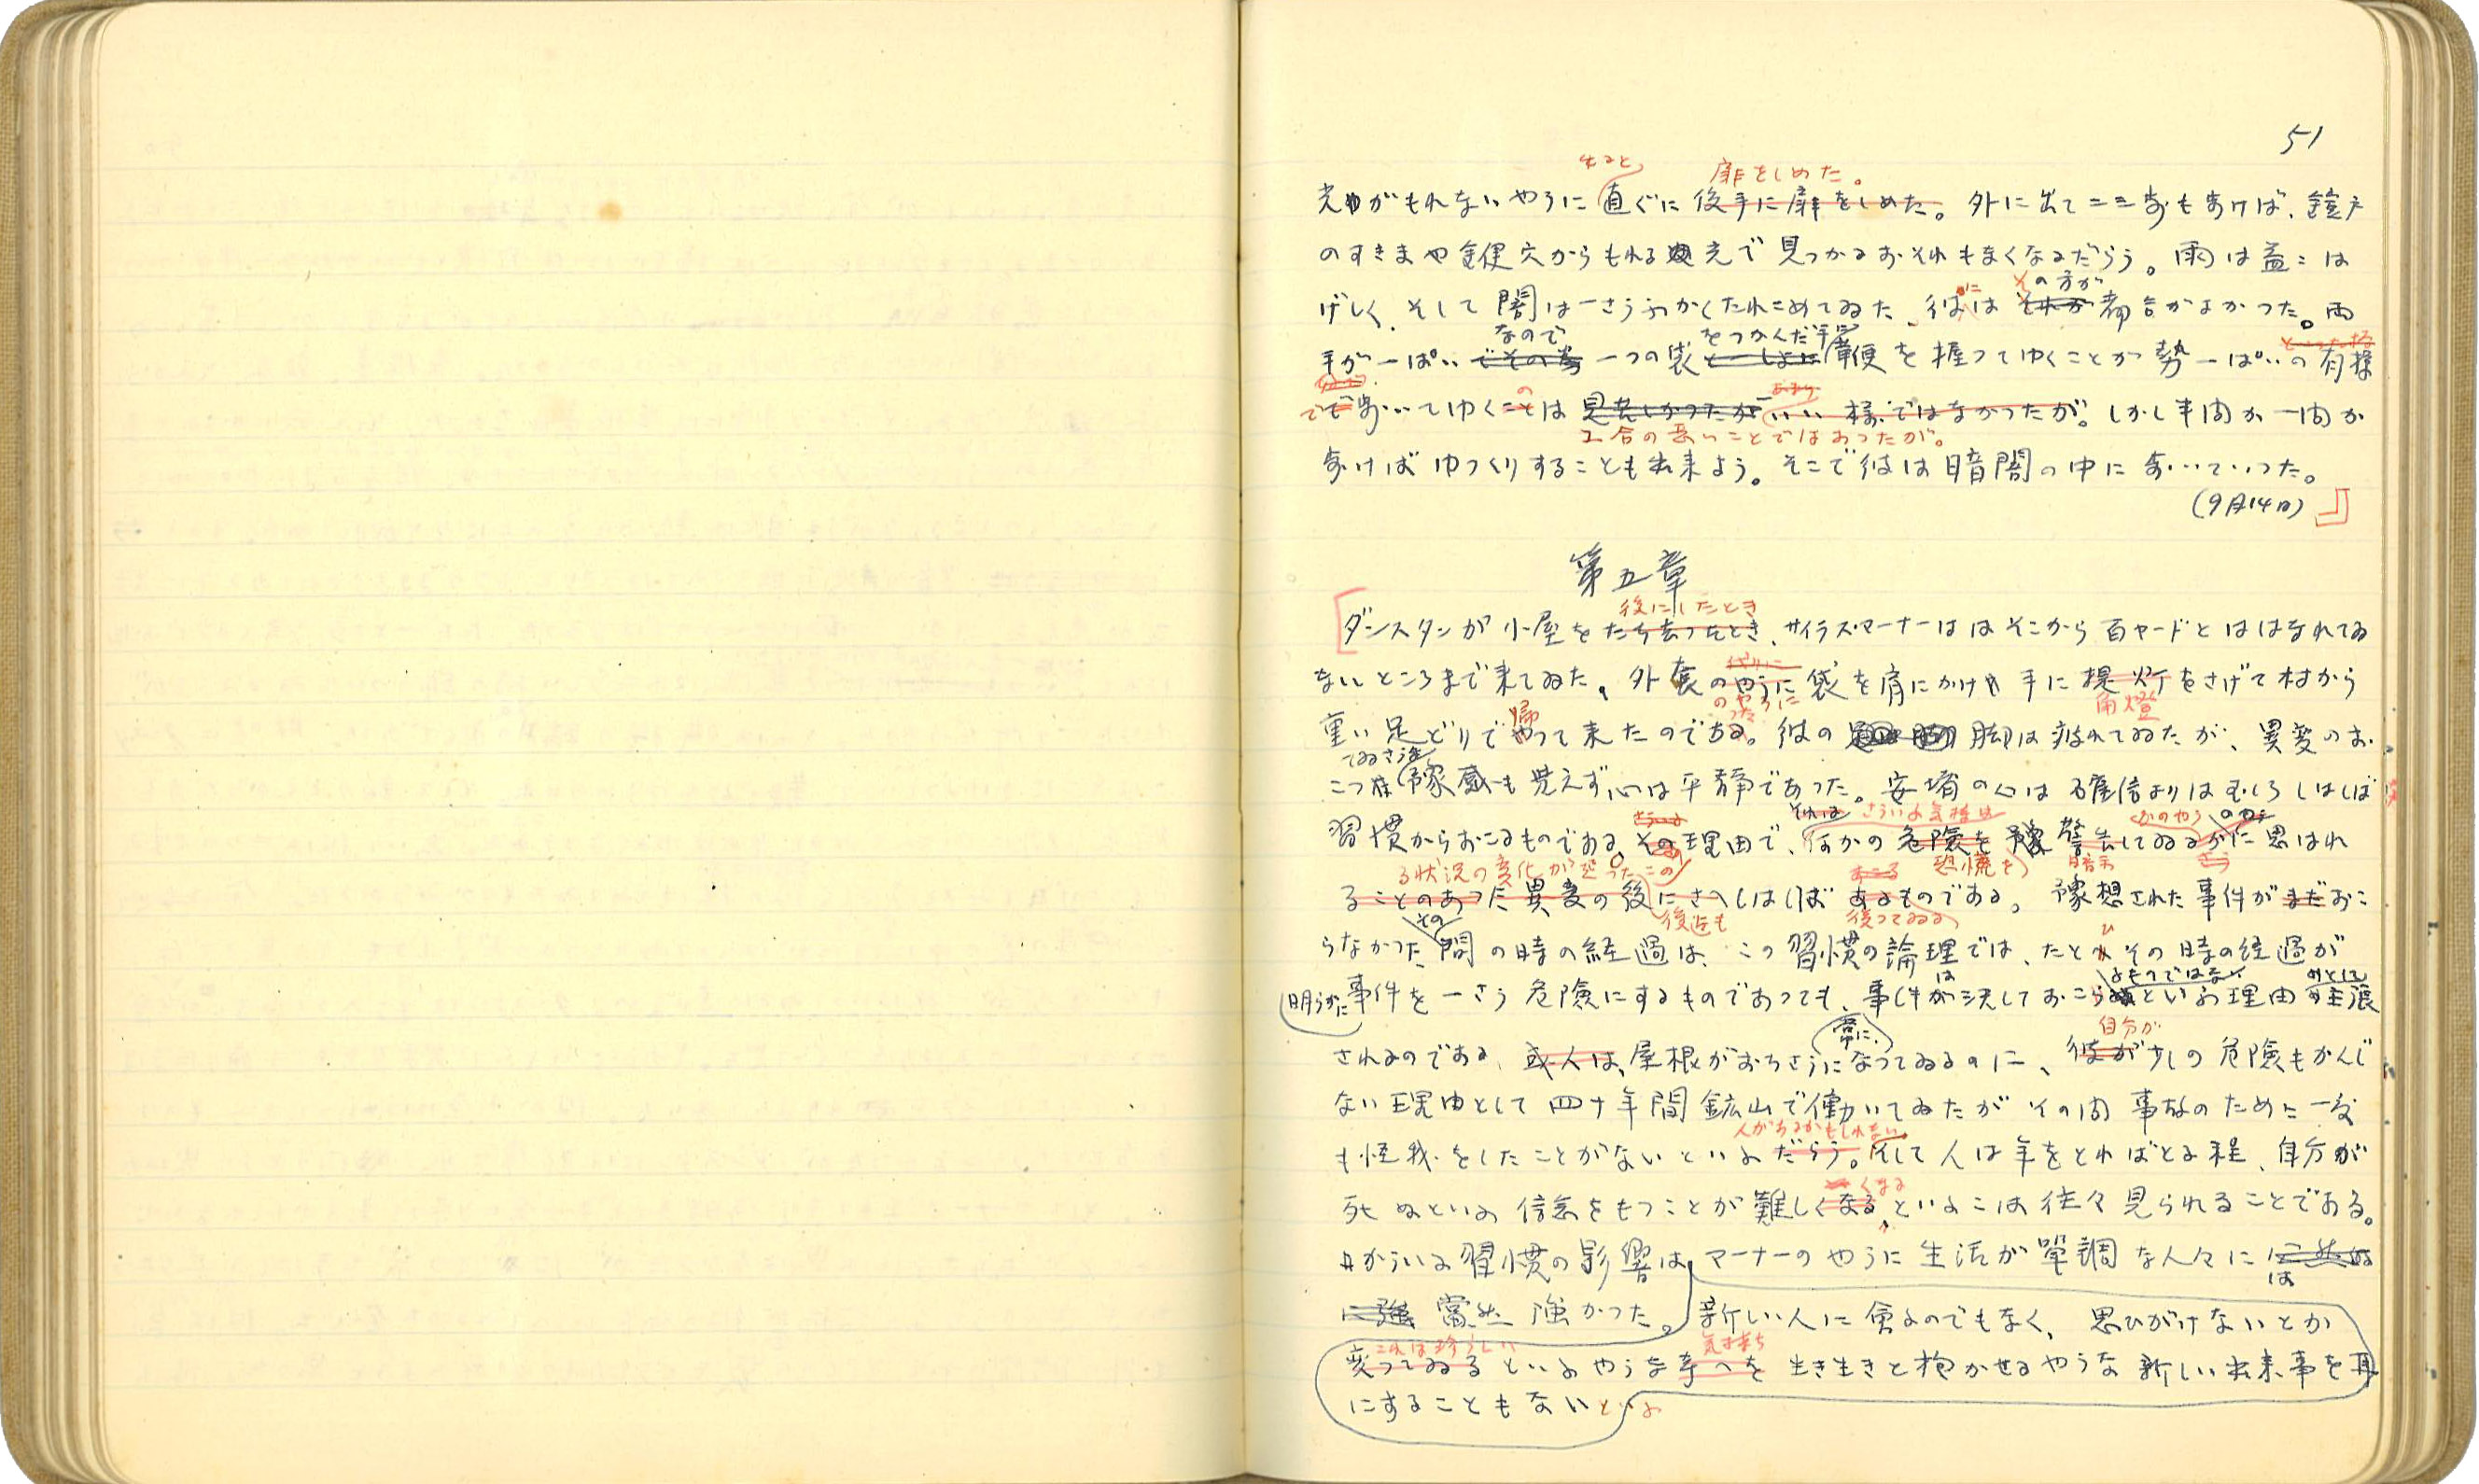 51
出ると、 扉をしめた。
光がもれないやうに直ぐに後手に扉をしめた。外に出て二三歩もあけば、鎧戸
のすきまや鍵穴からもれる光で見つかるおそれもなくなるだらう。雨は益々は
に その方が
げしく、そして闇は一さうふかくたれこめてゐた、彼には それが 都合がよかつた。両
なので をつかんだ手に
手が一ぱい でその 一つの袋 と一しよに 鞭を握つてゆくことが勢一ぱいの有様
で歩いてゆくことは 見苦しかつたが いい様ではなかつたが。しかし半間か一間か
工合の悪いことではあつたが。
歩けばゆつくりすることも出来よう。そこで彼は暗闇の中に歩いていつた。
(9月14日)』
第五章
後にしたとき
ダンスタンが小屋をたち去つたとき、サイラス・マーナーははそこから百ヤードとははなれてゐ
ないところまで来てゐた。外套のやうに袋を肩にかけ 手に提灯をさげて村から
のやうに 角燈
帰
重い足どりでやつて来たのである。彼の 脚は疲れてゐたが、異変のお
てゐさうな
こつ 豫感も覚えず、心は平静であつた。安堵の心は確信よりはむしろしばしば
それは さういふ気持は かのやう
習慣からおこるものである、その理由で、何かの危険を 警告してゐるかに思はれ
る状況の変化が起つたこの 恐慌を 暗示
ることのあつた異変の後にさへしばしばあるものである。豫想された事件がまだおこ
その 後迄も 後つてゐる
らなかつた間の時の経過は、この習慣の論理では、たとひその時の経過が
は ふものではない のとして
明らかに事件を一さう危険にするものであつても、事件が決しておこら といふ理由 主張
常に、 自分が
されるのである、或人は、屋根がおちさうになつてゐるのに、彼が少しの危険もかんじ
ない理由として四十年間鉱山で働いてゐたがその間事故のために一度
人があるかもしれない。
も怪我をしたことがないといふだらう。そして人は年をとればとる程、自分が
くなる
死ぬといふ信念をもつことが難しくなる、といふことは往々見られることである。
かういふ習慣の影響は、マーナーのやうに生活が単調な人々に
は
當然強かつた。新しい人に會ふのでもなく、思ひがけないとか
これは珍らしい 気持ち
変つてゐるといふやうな考へを生き生きと抱かせるやうな新しい出来事を耳
にすることもないといふ